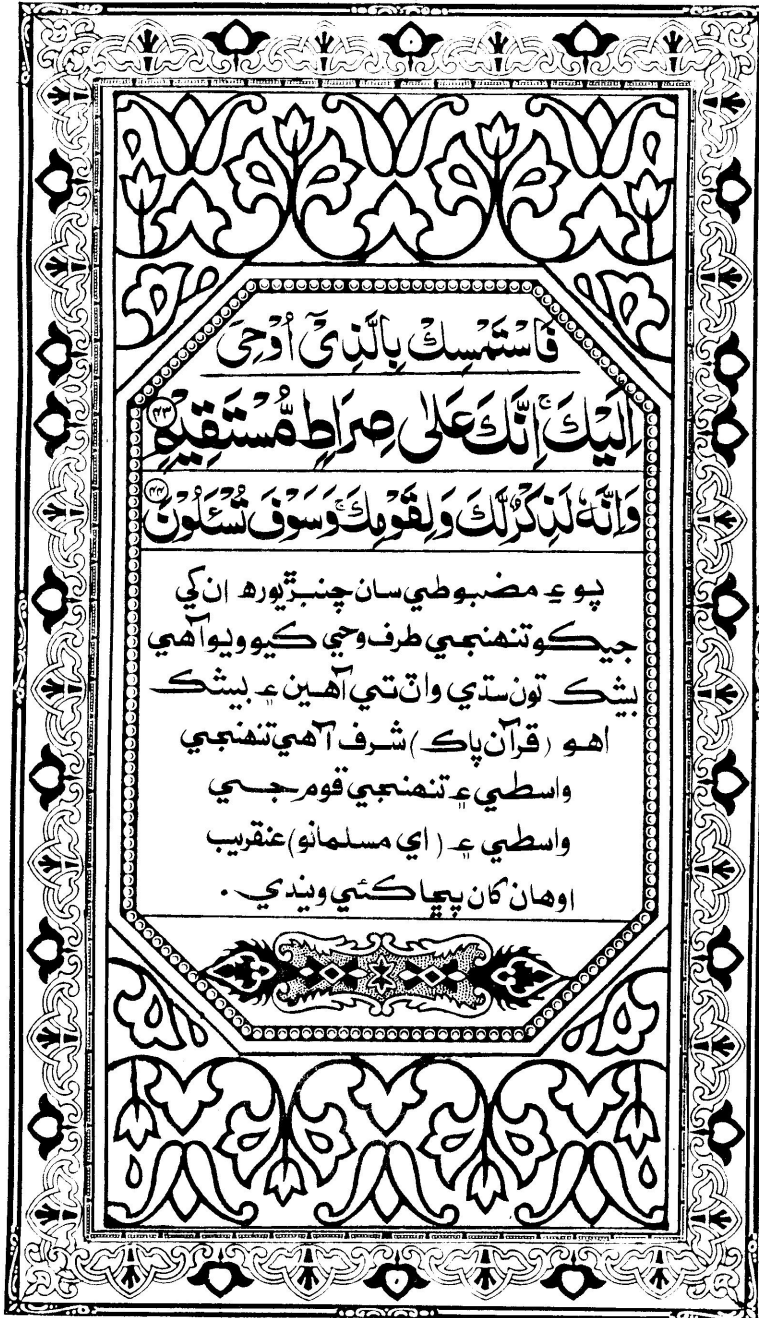 فَاسْتَمْسِكْ بِالَّذِیْۤ اُوْحِیَ
اِلَیْكَ ۚ اِنَّكَ عَلٰی صِرَاطٍ مُّسْتَقِیْمٍ ﴿۴۳﴾
وَاِنَّهٗ لَذِكْرٌ لَّكَ وَلِقَوْمِكَ ۚ وَسَوْفَ تُسْـَٔلُوْنَ ﴿۴۴﴾
پوءِ مضبوطي سان چنبڙيو رھ ان کي
جيڪو تنهنجي طرف وحي ڪيو ويو آهي
بيشڪ تون سڌي واٽ تي آهين ۽ بيشڪ
اهو (قرآن پاڪ) شرف آهي تنهنجي
واسطي ۽ تنهنجي قوم جي
واسطي ۽ (اي مسلمانو) عنقريب
اوهان کان پڇا ڪئي ويندي.